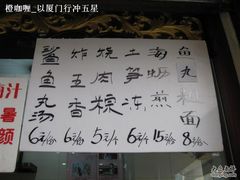 橙咖喱_以厦门行冲五星
鲨鱼丸汤 6元/份
炸五香 6元/份
烧肉粽 5元/个
土笋冻 6元/份
海蛎煎 15元/份
鱼丸面 8元/份
汁
暑
颜